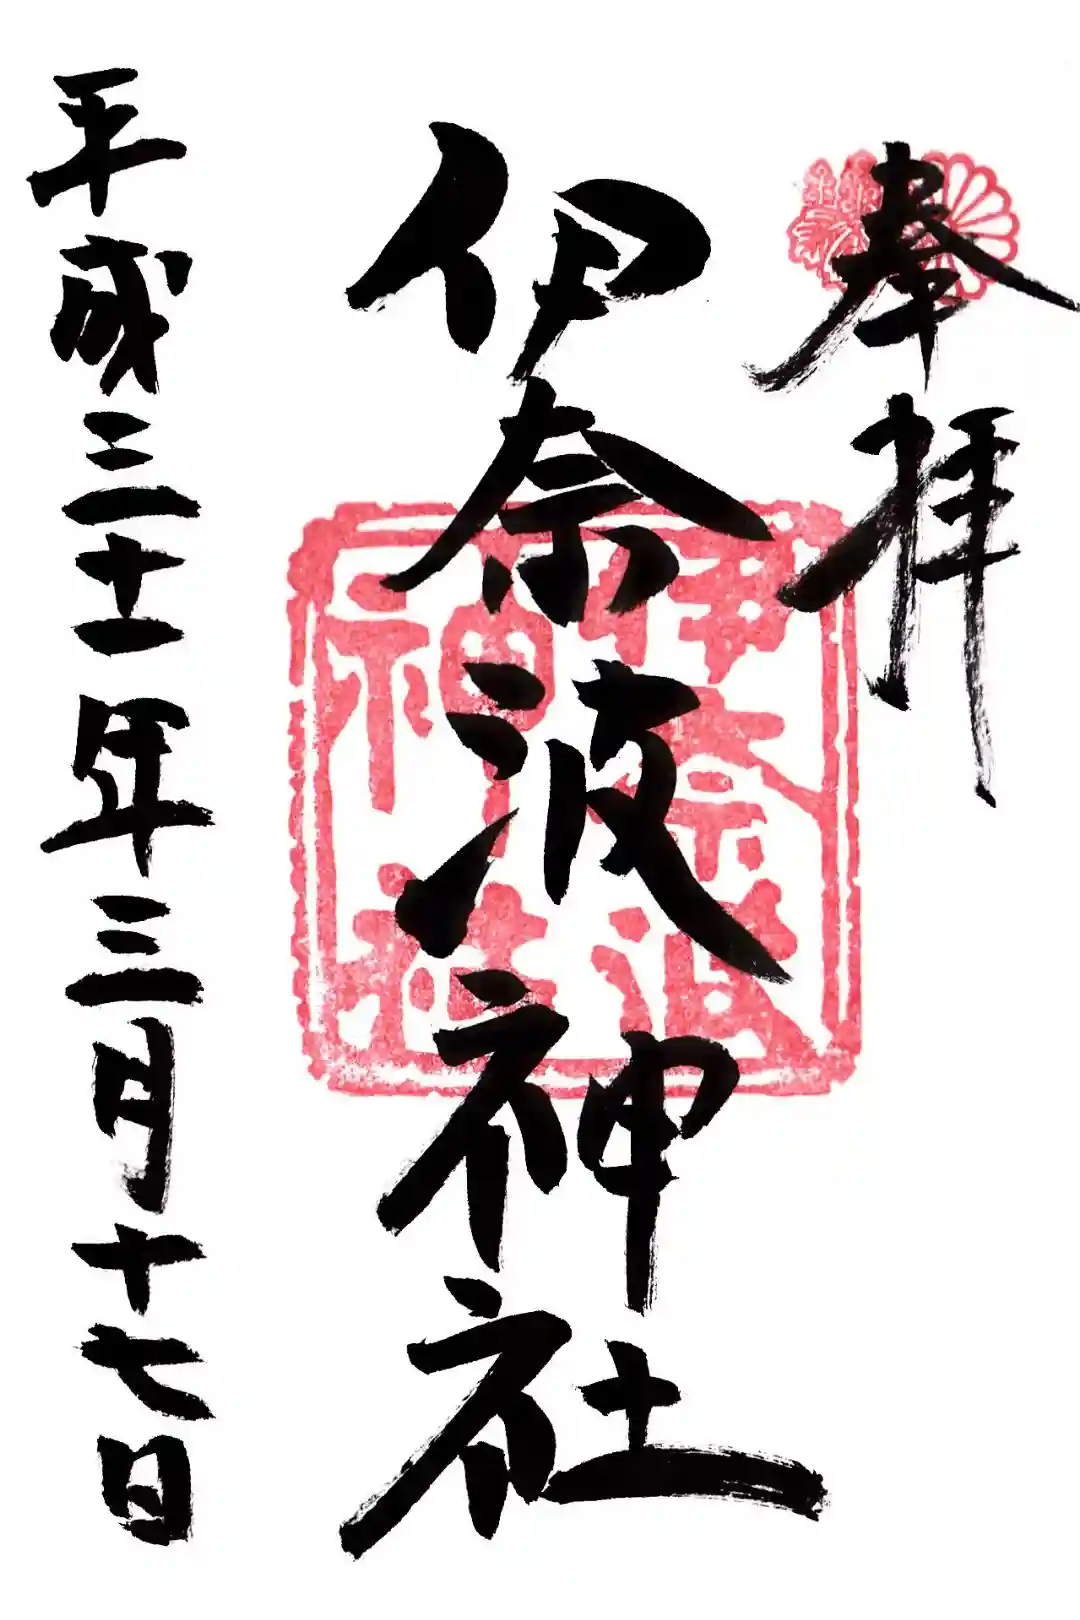 奉拝
伊奈波神社
伊奈波
神社
平成三十一年三月十七日